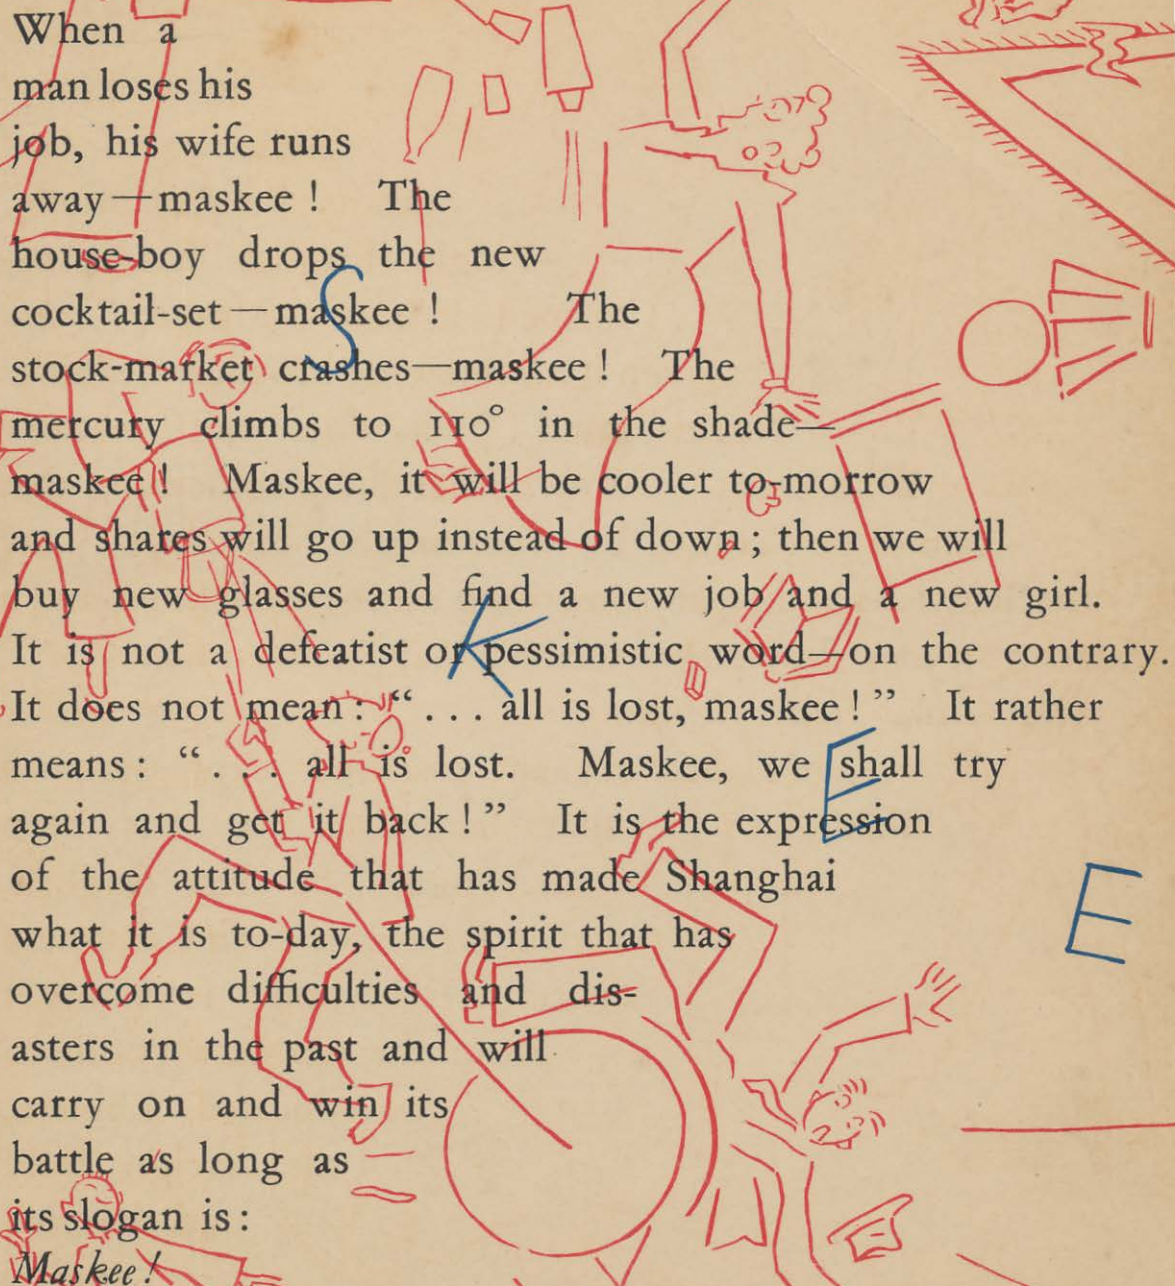 When a
man loses his
job, his wife runs
away—maskee ! The
house-boy drops the new
cocktail-set—maskee ! The
S
stock-market crashes—maskee ! The
mercury climbs to 110° in the shade—
maskee ! Maskee, it will be cooler to-morrow
and shares will go up instead of down ; then we will
buy new glasses and find a new job and a new girl.
K
It is not a defeatist or pessimistic word—on the contrary.
It does not mean : “ . . . all is lost, maskee ! ” It rather
means : “ . . . all is lost. Maskee, we shall try
E
again and get it back ! ” It is the expression
of the attitude that has made Shanghai
E
what it is to-day, the spirit that has
overcome difficulties and dis-
asters in the past and will
carry on and win its
battle as long as
its slogan is :
Maskee !